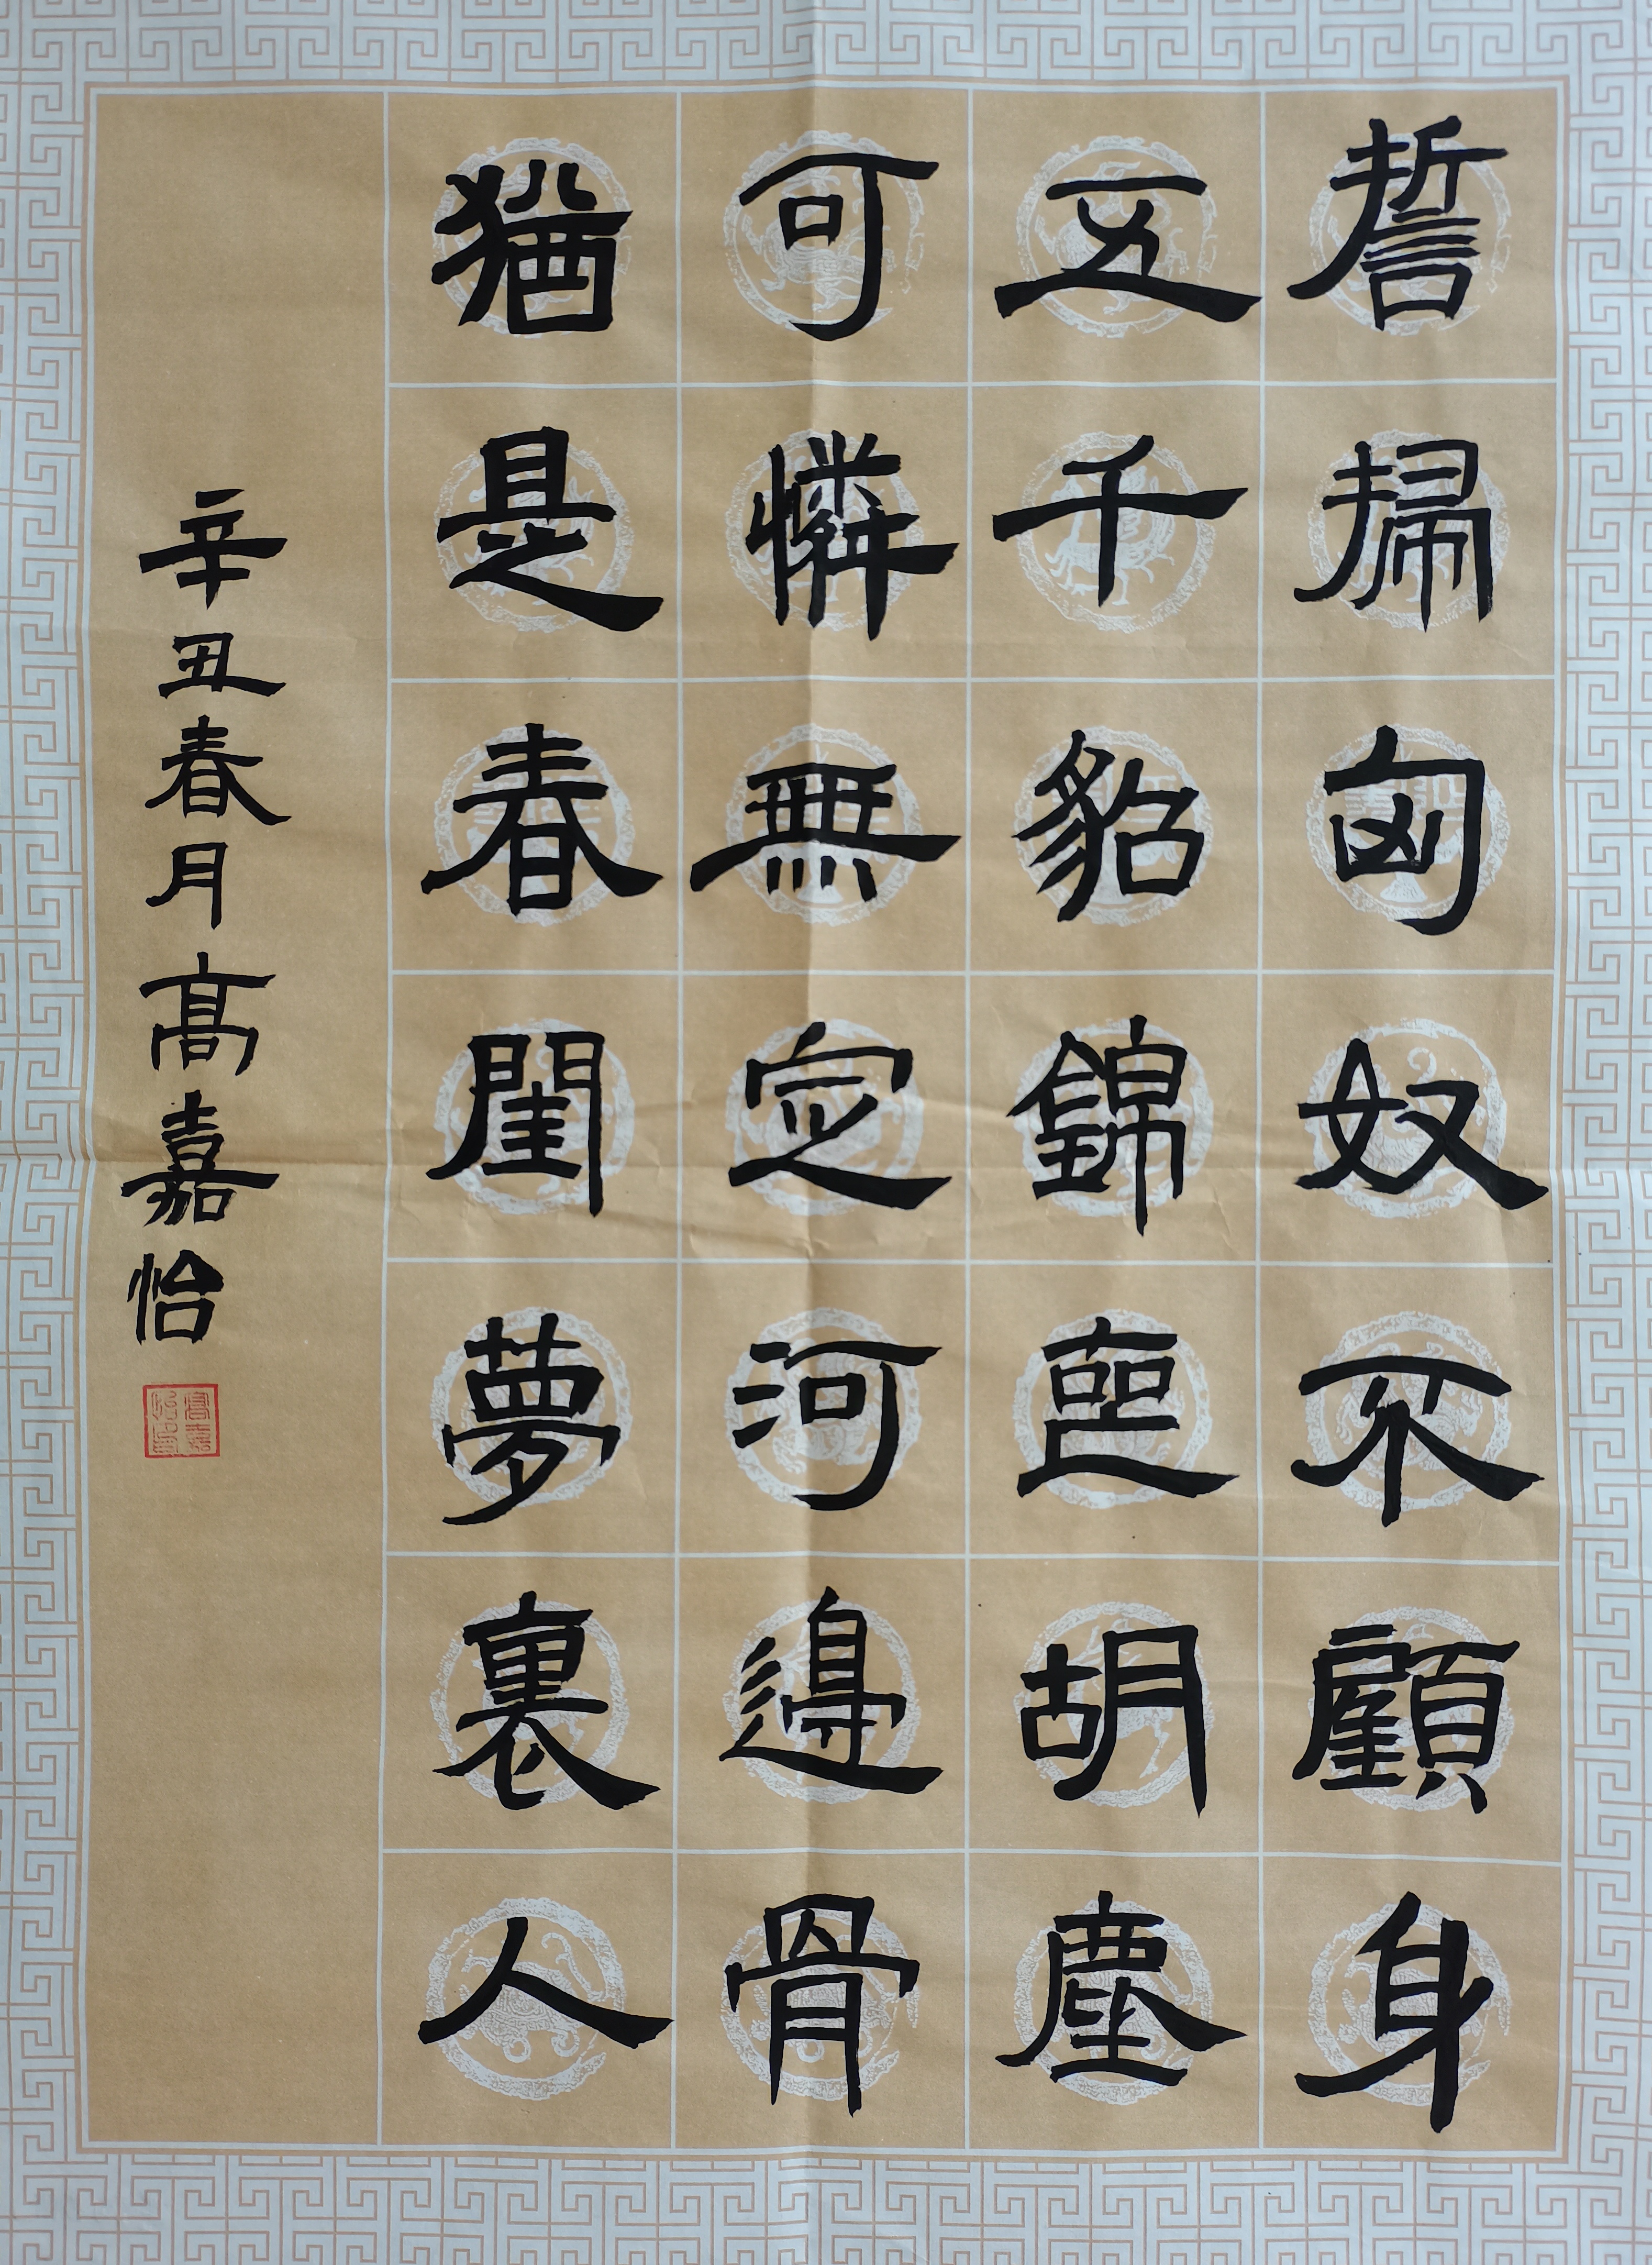 誓掃匈奴不顧身
五千貂錦喪胡塵
可憐無定河邊骨
猶是春閨夢裏人
辛丑春月高嘉怡